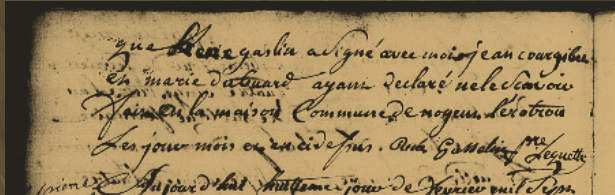 que René gaslin a Signé avec moi jean courgibet
et marie dutuard ayant declaré ne le Scavoir
fait en la maison Commune de nogent Le rotrou
Les jour mois et an ci desus. René Gasselin Leguette
aujourd'hui huitieme jour de fevrier mil Sept